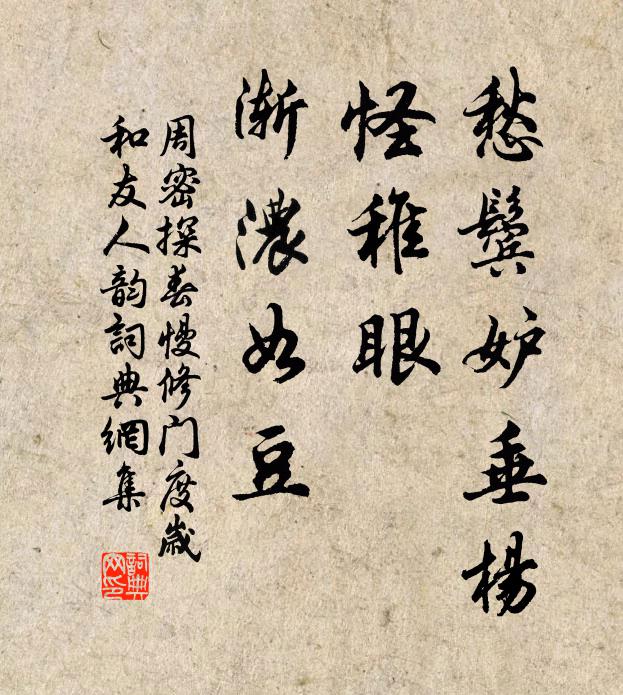 愁鬓妒垂楊
怪稚眼
漸濃如豆
周密探春慢修门度歲
和友人韵詞典網集
詞典网印